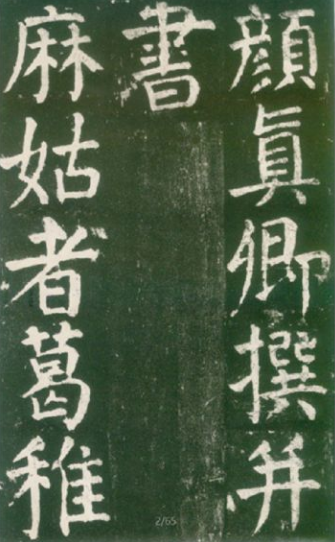 顔眞卿撰并
書
麻姑者葛稚
2/65